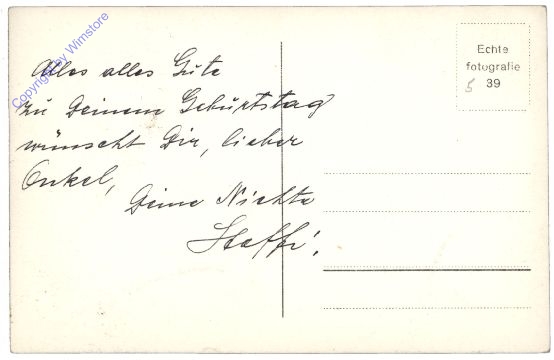 Copyright by Wimstore
Alles alles Gute
zu Deinem Geburtstag
wünscht Dir, lieber
Onkel,
Deine Nichte
Steffi.
Echte
fotografie
39
5